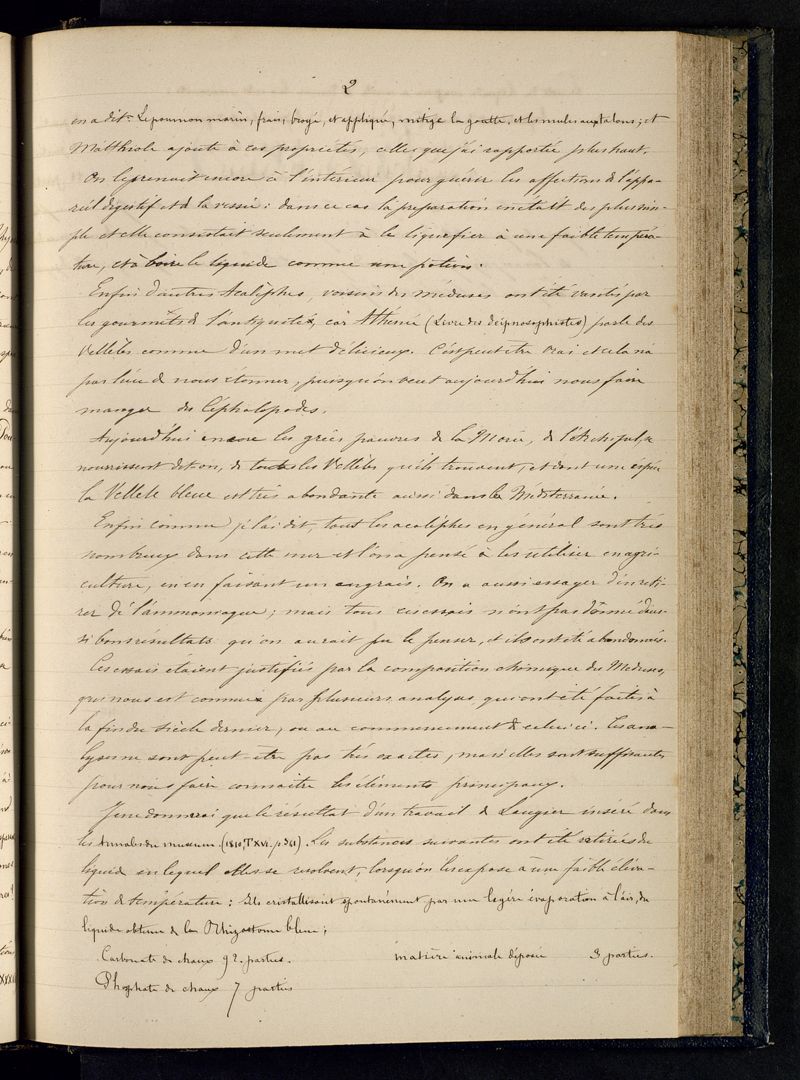 2
en a dit: Le poumon marin, frais, broyé, et appliqué, mitige la goutte, et les mules aux talons; et
Matthiole ajoute à ces propriétés, celles que j'ai rapportée plus haut.
On le prenait encore à l'intérieur pour guérir les affections de l'appa-
reil digestif et de la vessie: dans ce cas la préparation en etait des plus sim-
ple et elle consistait seulement à le liquefier à une faible tempéra-
ture, et à boire le liquide comme une potion.
Enfin d'autres Acalèphes, voisins des méduses ont été vantés par
les gourmêts de l'antiquité, car Athenée (Livre des deipnosophistes) parle des
Vellèles comme d'un met délicieux. C'est peut être vrai et cela n'a
pas lieu de nous étonner, puisqu'on veut aujourd'hui nous faire
manger des Céphalopodes.
Aujourd'hui encore les grécs pauvres de la Morée, de l'Archipel, se
nourrissent dit-on, de toutes les Vellèles qu'ils trouvent, et dont une espèce
la Vellele bleue est très abondante aussi dans la Méditerranée.
Enfin comme je l'ai dit, tous les acalèphes en général sont très
nombreux dans cette mer et l'on a pensé à les utiliser en agri-
culture, en en faisant un engrais. On a aussi essayer d'en reti-
rer de l'ammoniaque; mais tous ces essais n'ont pas donné d'aus-
si bons resultats qu'on aurait pu le penser, et ils ont été abandonnés.
Ces essais etaient justifiés par la composition chimique des Méduses,
qui nous est connue par plusieurs analyses qui ont été faites à
la fin du siècle dernier, ou au commencement de celui ci. Ces ana-
lyses ne sont peut-être pas très exactes, mais elles sont suffisantes
pour nous faire connaitre les éléments principaux.
Je ne donnerai que le résultat d'un travail de Laugier inséré dans
les Annales du museum (1810, T XVI. p. 361). Les substances suivantes ont été retirées du
liquide en lequel elles se resolvent, lorsqu'on les expose à une faible éléva-
tion de température: Ils cristallisent spontanément par une legère évaporation à l'air, du
liquide obtenu de la Rhizostome bleue;
Carbonate de chaux 92. parties. matière animale déposée 3 parties.
Phosphate de chaux 7 parties